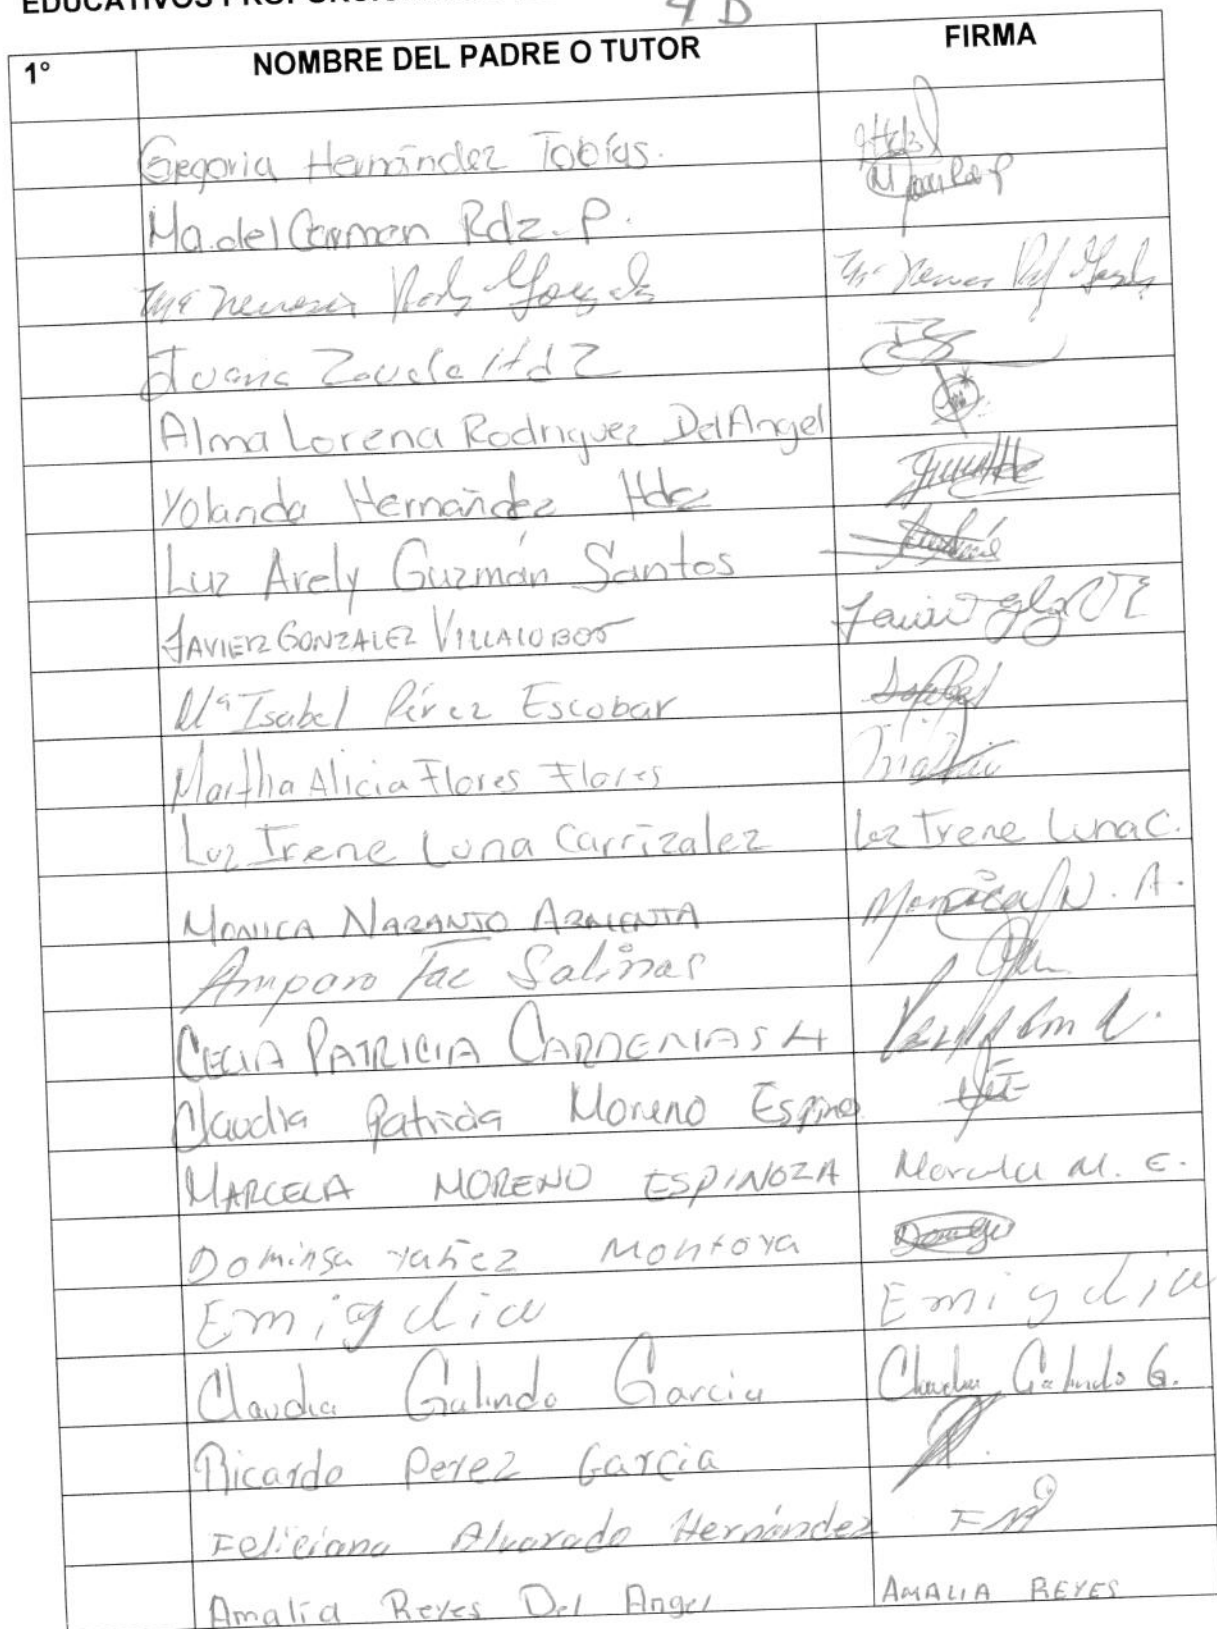 4 D
1° NOMBRE DEL PADRE O TUTOR FIRMA
Gregoria Hernández Tobías.
Ma. del Carmen Rdz. P.
Juana Zavala Hdz
Alma Lorena Rodriguez Del Angel
Yolanda Hernández Hdz
Luz Arely Guzmán Santos
JAVIER GONZALEZ VILLALOBOS
Mª Isabel Pérez Escobar
Martha Alicia Flores Flores
Luz Irene Luna Carrizalez Luz Irene Luna C.
MONICA NARANJO ARMENTA Monica N. A.
Amparo Tac Salinas
CECIA PATRICIA CARDENAS H
Claudia Patricia Moreno Espino
MARCELA MORENO ESPINOZA Marcela M. E.
Dominga Yañez Montoya
Emigdia Emigdia
Claudia Galindo Garcia Claudia Galindo G.
Ricardo Perez Garcia
Feliciana Alvarado Hernández
Amalia Reyes Del Angel AMALIA REYES